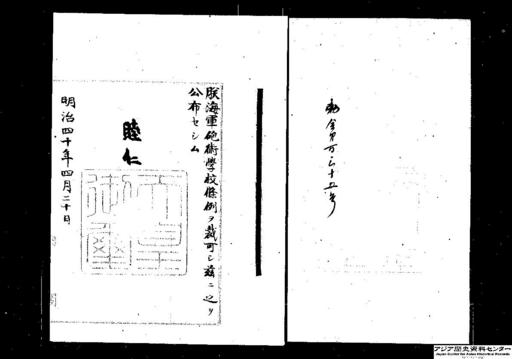 勅令第百三十五号
朕海軍砲術學校條例ヲ裁可シ茲ニ之ヲ
公布セシム
睦仁
天皇御璽
明治四十年四月二十日
アジア歴史資料センター
Japan Center for Asian Historical Records